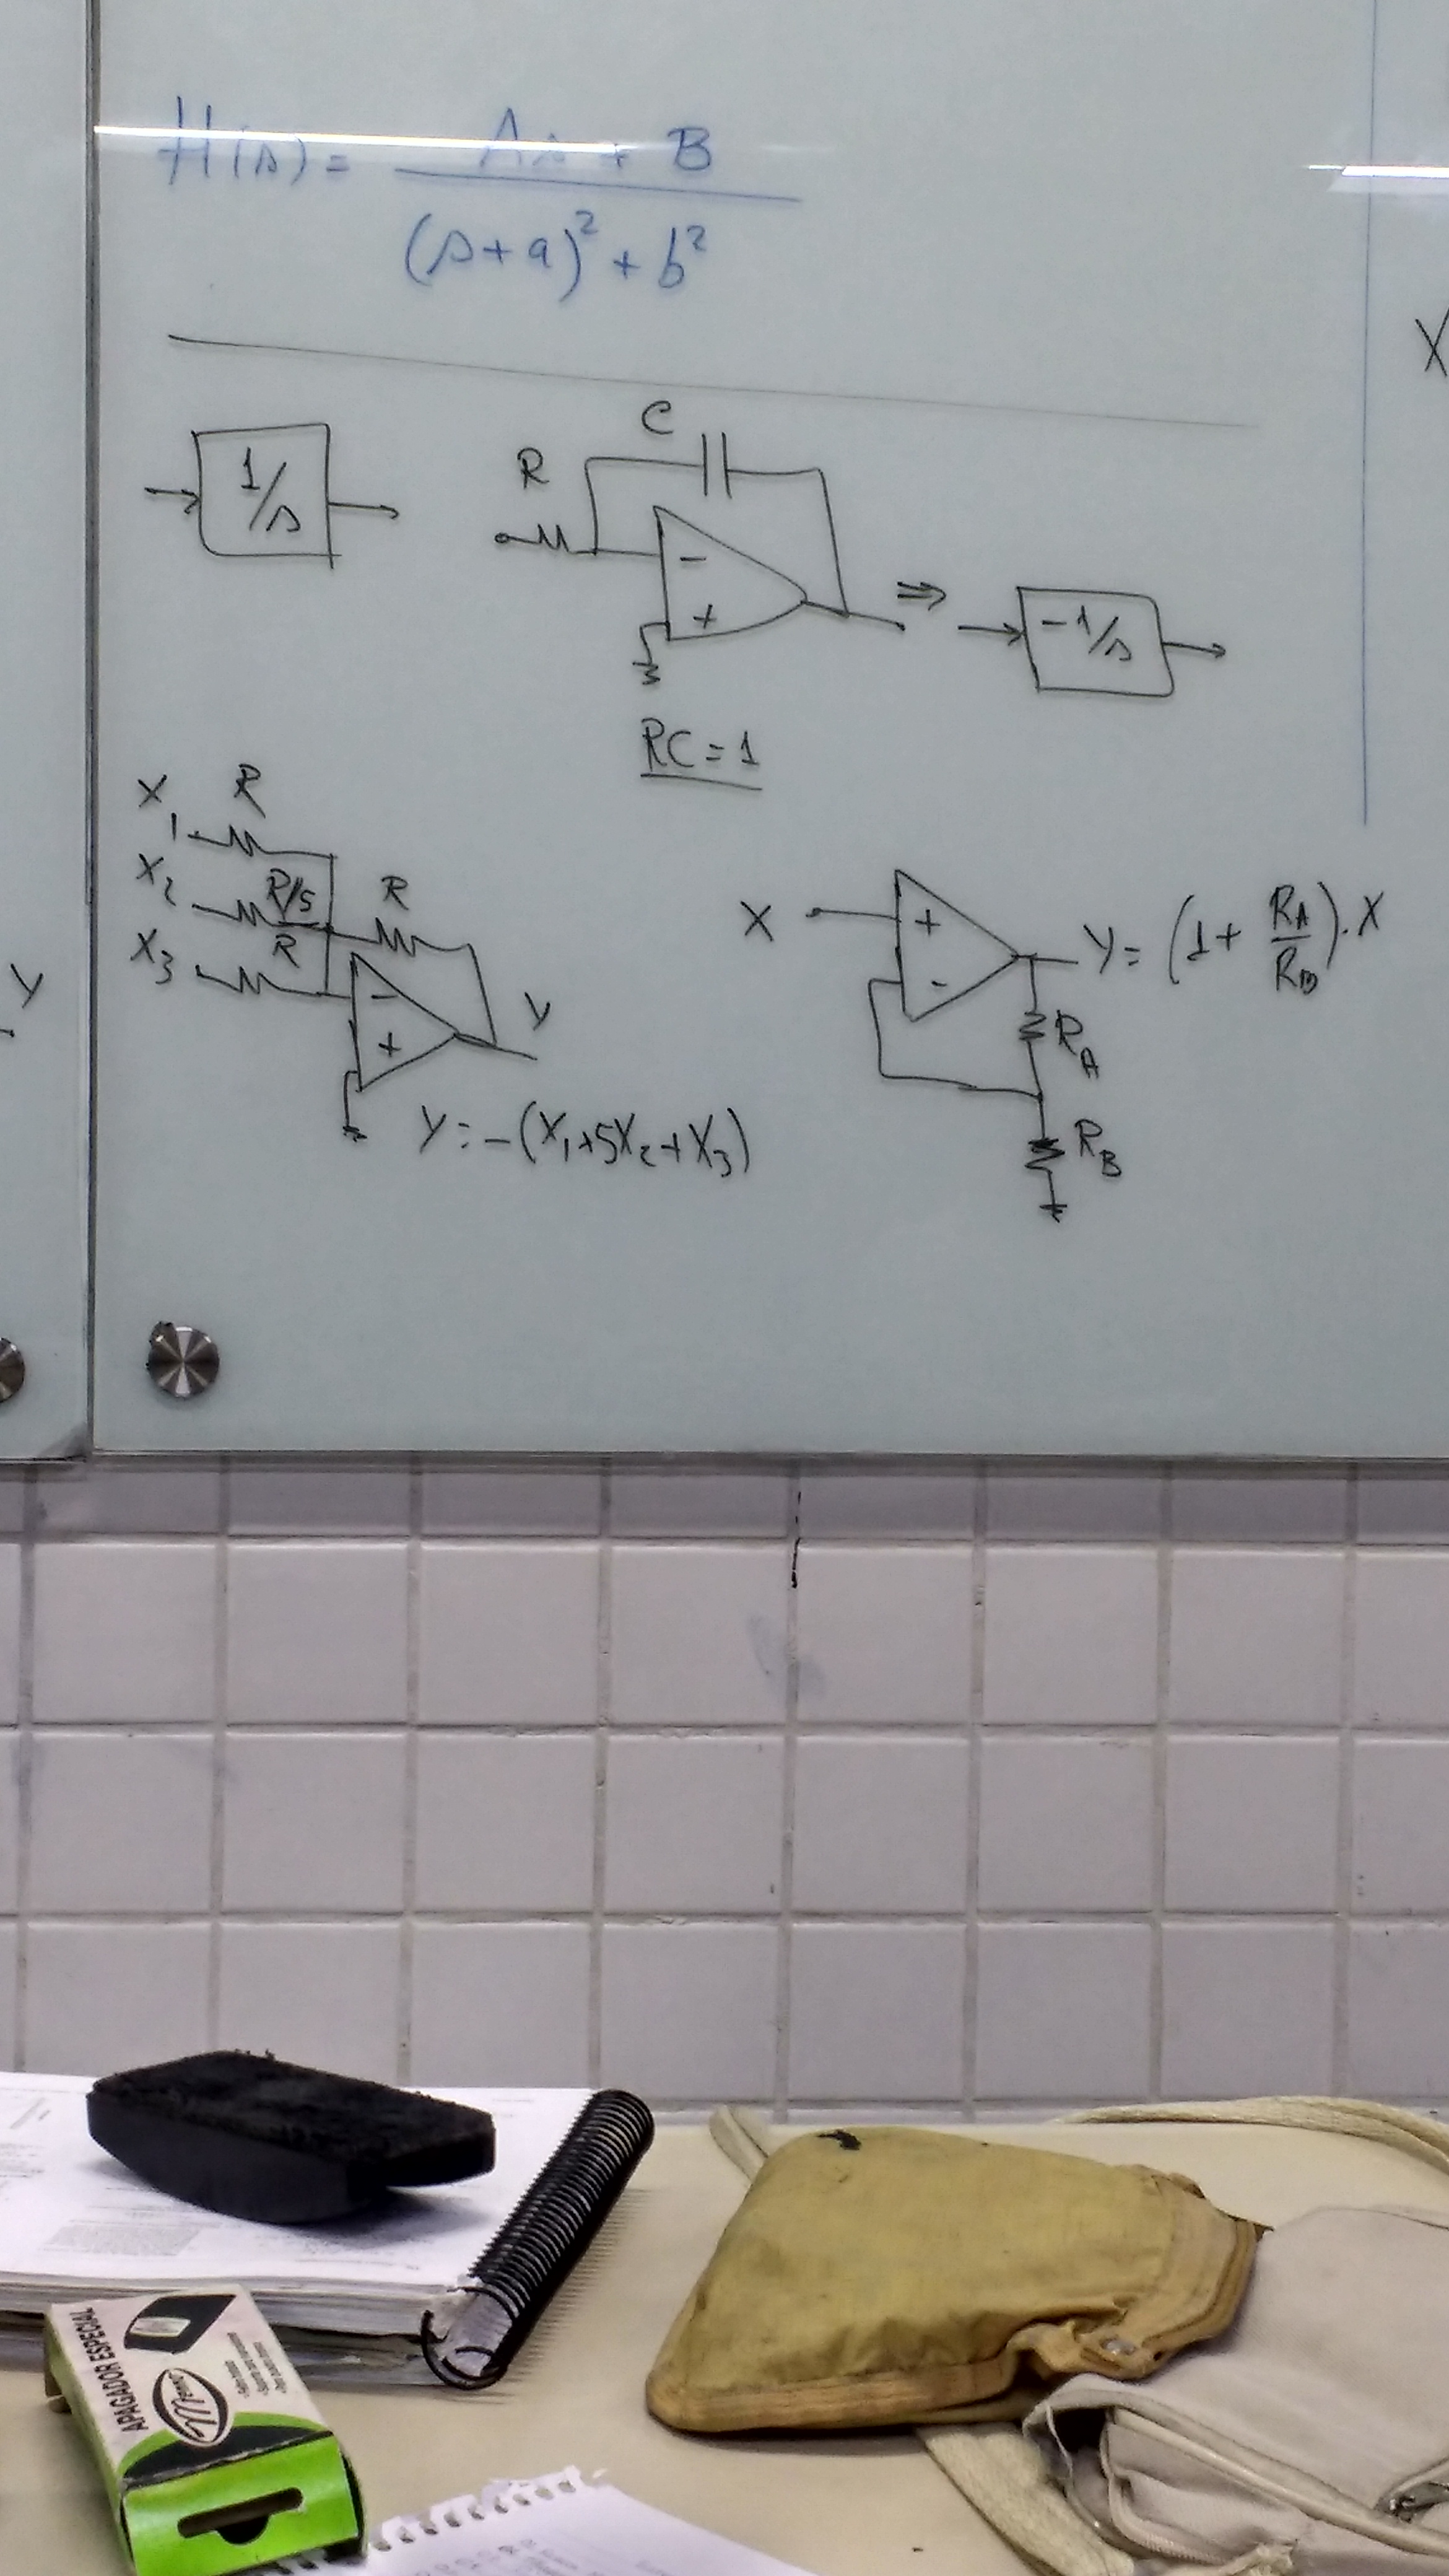 H(s) = As + B
(s+a)² + b²
X
1/s
R
C
-
+
⇒
-1/s
RC = 1
X₁
R
X₂
R/5
R
X₃
R
-
+
Y
Y = -(X₁+5X₂+X₃)
X
+
-
Y = (1 + R_A/R_B).X
R_A
R_B
Y
APAGADOR ESPECIAL